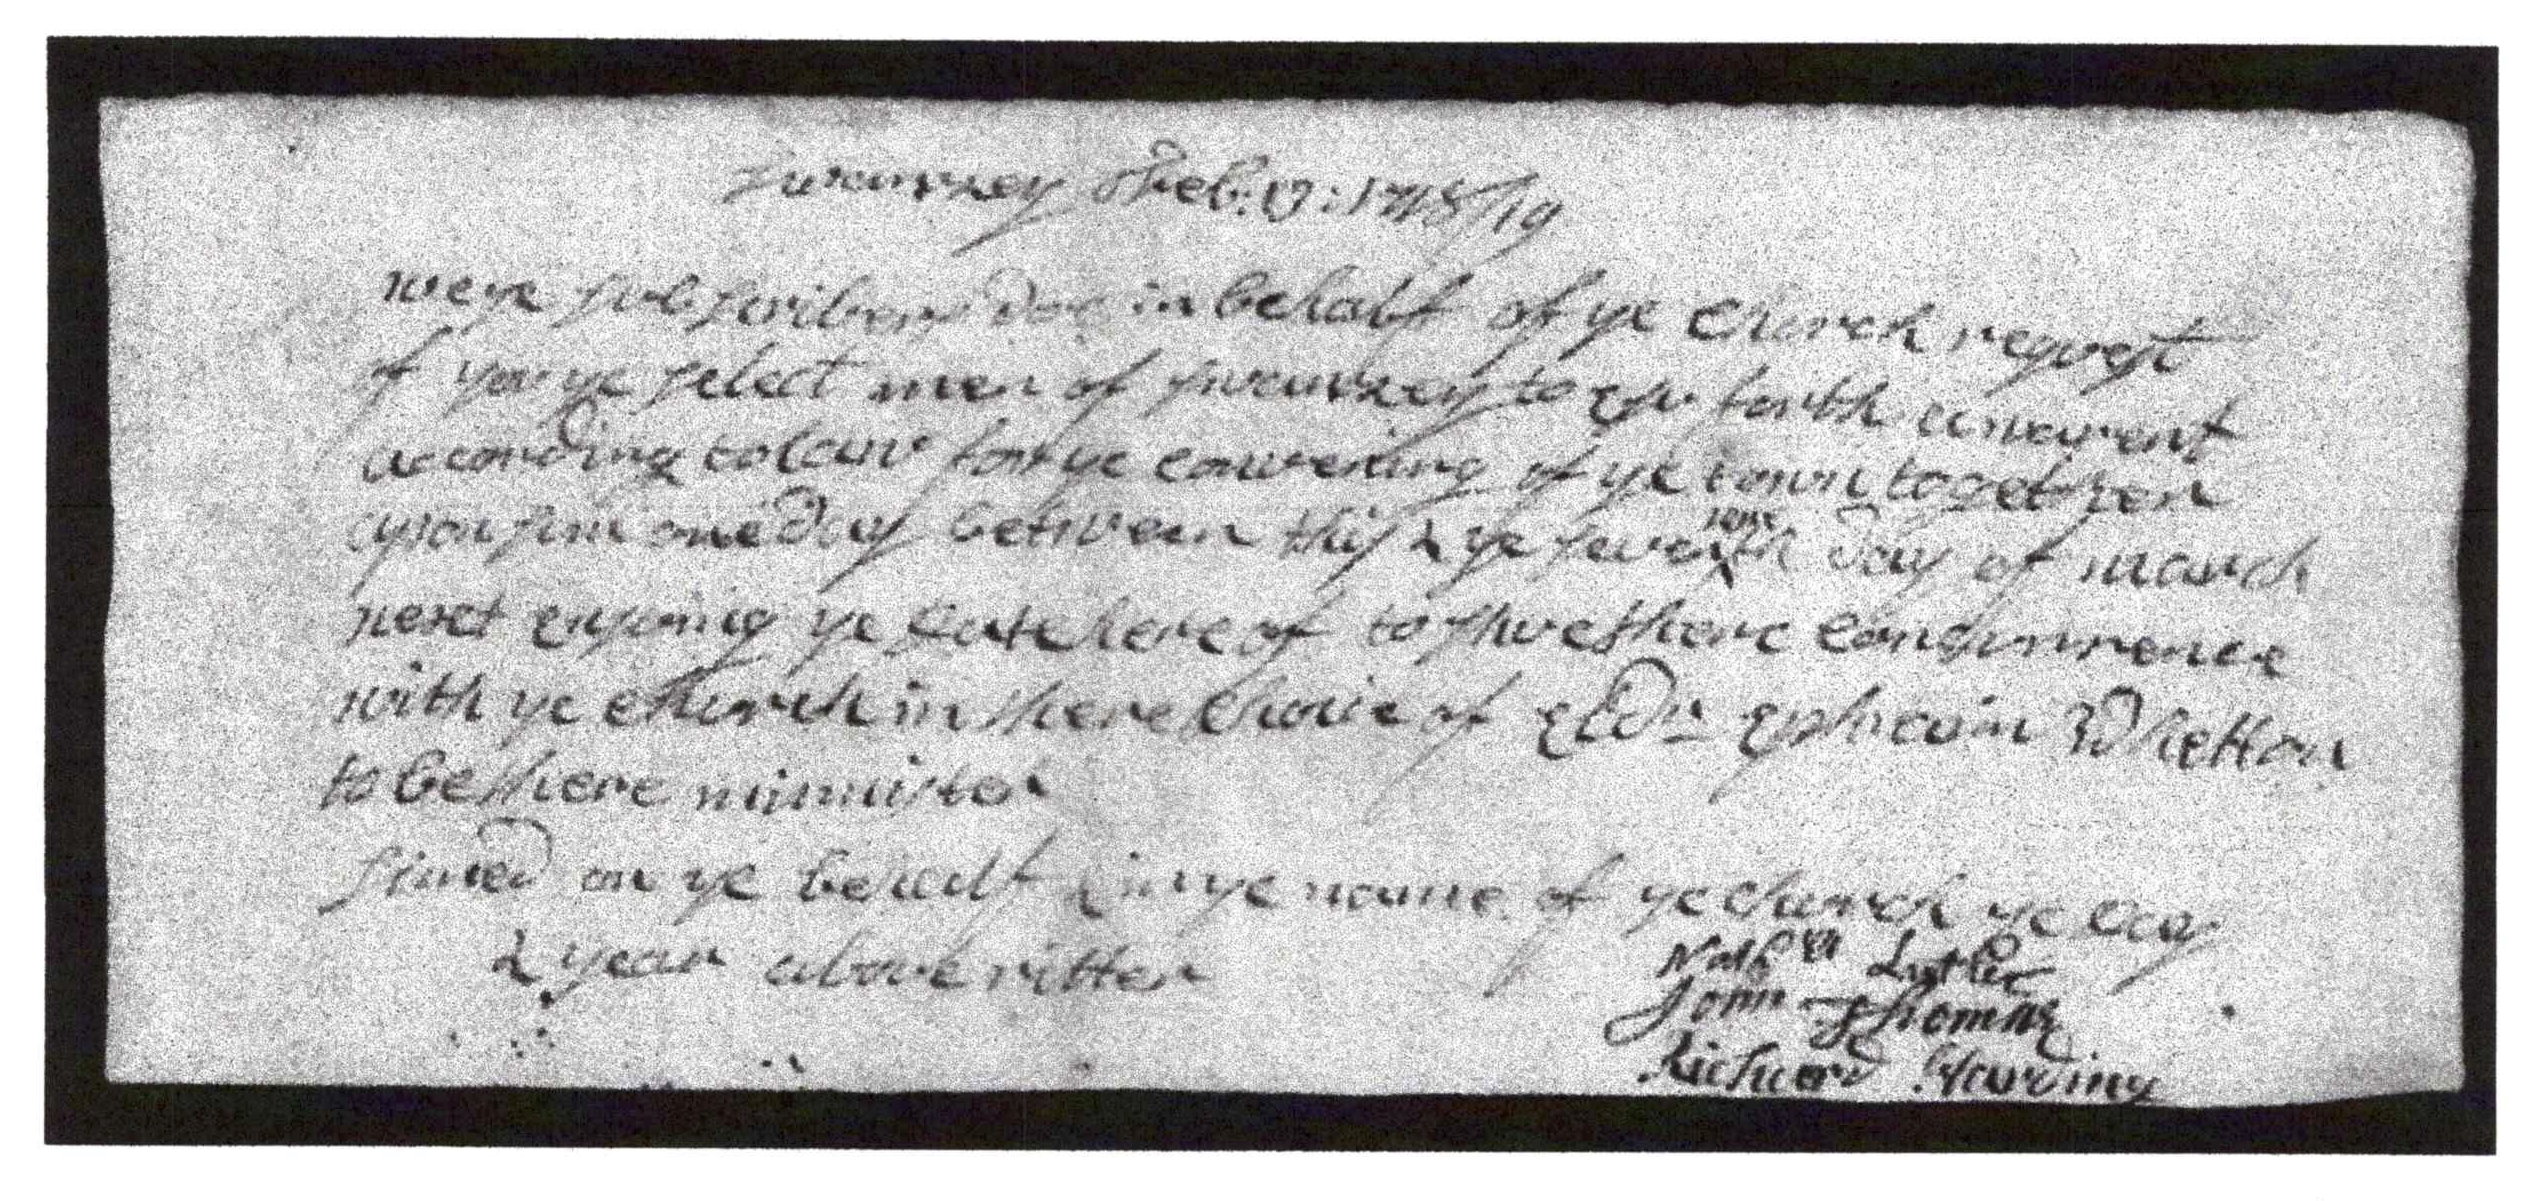 Swanzey Feb: 17: 1718/19
we ye subscribers doe in behalf of ye Church request
of you ye select men of swanzey to forth
according to law for ye of ye town together
upon sum one day between this & ye seventh day of march
next ensuing ye date hereof to there Concurrence
with ye church in there Choice of Eldr Ephraim Whetton
to be there minnister
sined on ye behalf & in ye name of ye church ye day
& year above ritten
Nathll Luther
John Thomas
Richard Harding